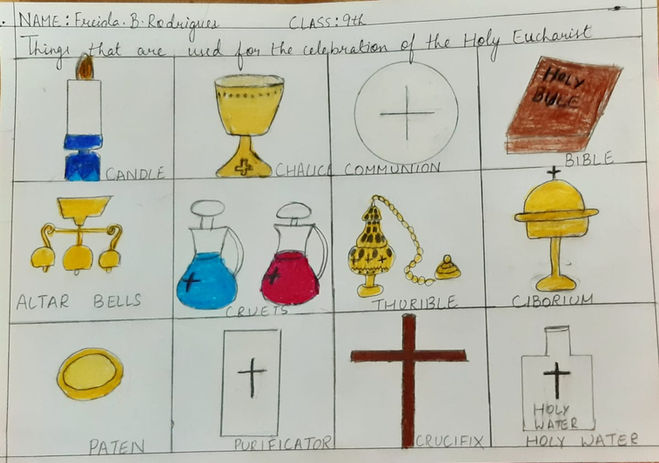 NAME: Freiola. B. Rodrigues CLASS: 9th
Things that are used for the celebration of the Holy Eucharist
CANDLE
CHALICE
COMMUNION
HOLY
BIBLE
BIBLE
ALTAR BELLS
CRUETS
THURIBLE
CIBORIUM
PATEN
PURIFICATOR
CRUCIFIX
HOLY
WATER
HOLY WATER